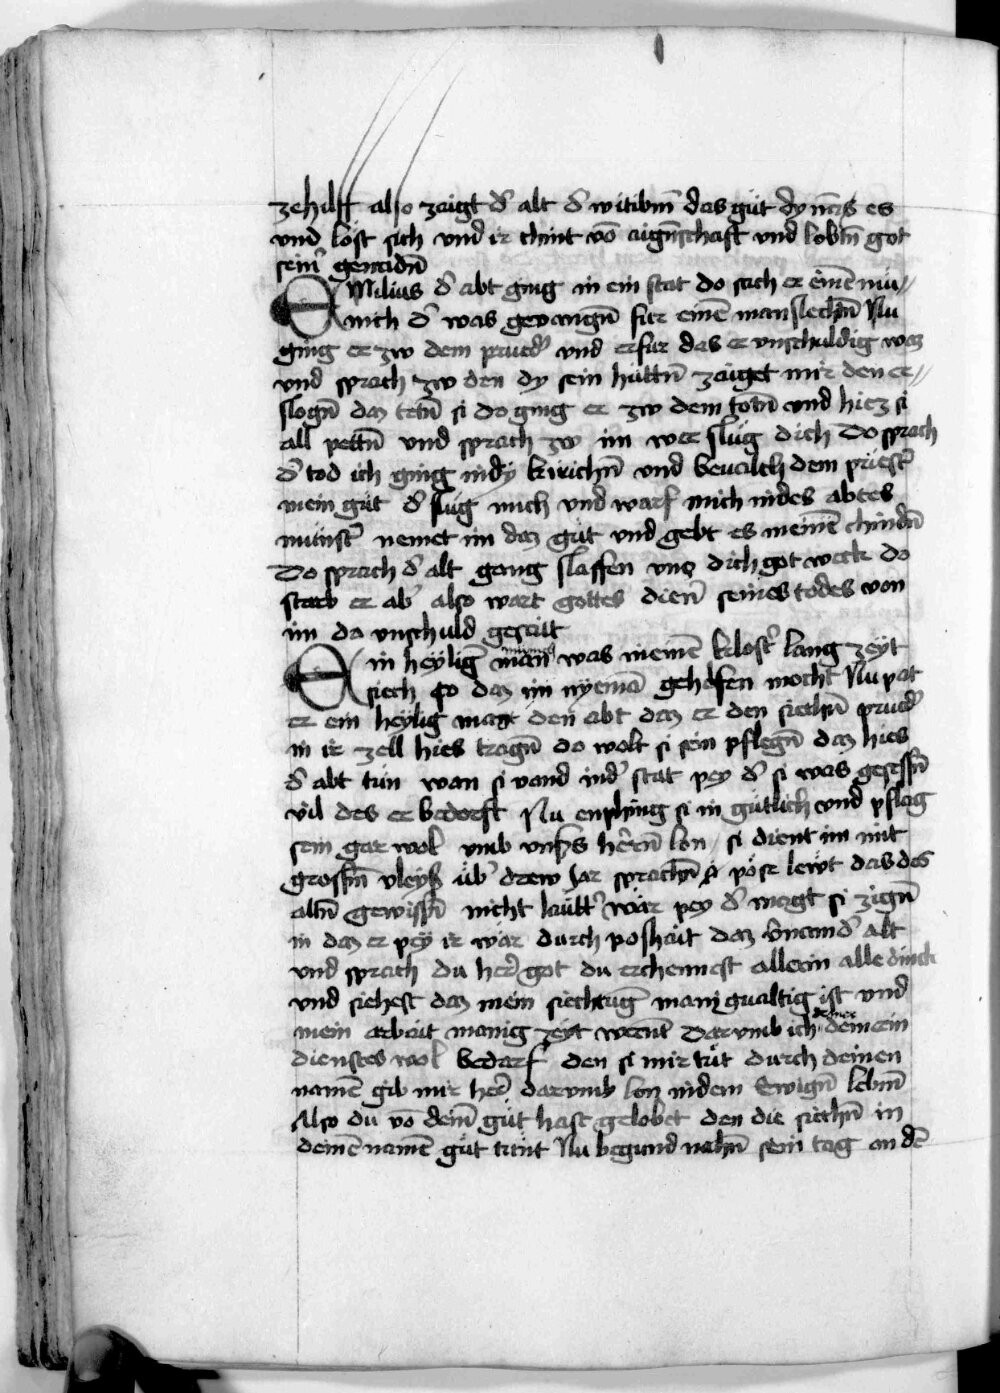 zehilff also zaigt d̕ alt d̕ witibm̄ das gut dy nā es
vnd lost sich vnd ir chint vō aign̄schaft vnd lobtn̄ got
sein̕ genadn̄
EMilius d̕ abt ging in ein stat do sach er einē mü〃
nich d̕ was gevangn̄ fur einē manslechn̄ Nu
ging er zw dem prued̕ vnd erfur das er vnschuldig waz
vnd sprach zw den dy sein hüttn̄ zaiget mir den er〃
slogn̄ daz tetn̄ si do ging er zw dem totn̄ vnd hiez si
all pettn̄ vnd sprach zw im wer slug dich Do sprach
d̕ tod ich ging in dy kirichn̄ vnd bevalch dem priest̕
mein gut d̕ slug mich vnd warf mich in des abtes
münst̕ nemet im daz gut vnd gebt es meinē chindn̄
Do sprach d̕ alt gang slaffen vnc dich got wekt do
starb er ab̕ also wart gottes dien̕ seines todes von
im do vnschuld gesait
Ein heyligē man was in einē klost̕ lang zeyt
siech so daz im nyemā gehelfen mocht Nu pat
er ein heylig man den abt daz er den siechn̄ prued̕
in ir zell hies tragn̄ do wolt si sein pflegn̄ daz hies
d̕ abt tun wan si vand in d̕ stat pey d̕ si was gesessn̄
vil des er bedorft Nu enphing si in gutlich̕ vnd pflag
sein gar wol vmb vnsers herrn̄ lon si dient im mit
grossm̄ vleyß üb̕ drew jar sprachn̄ pöse lewt das des
altn̄ gewissn̄ nicht lautt̕ wär pey d̕ magt si zign̄
in daz er pey ir wär durch poshait daz v̕nam d̕ alt
vnd sprach du her̕ got du erchennest allain alle dinck
vnd siehest daz mein siechtuḡ manigualtig ist vnd
mein arbait manig zeyt werent Darvmb ich deiner
dienstes wol bedarf den si mir tüt durch deinen
namē gib mir her̕ darvmb lon in dem Ewign̄ lebm̄
Also du vō deinē gut hast gelobet den die siechn̄ in
deinē namē gut tünt Nu begund nahn̄ sein tag an dē